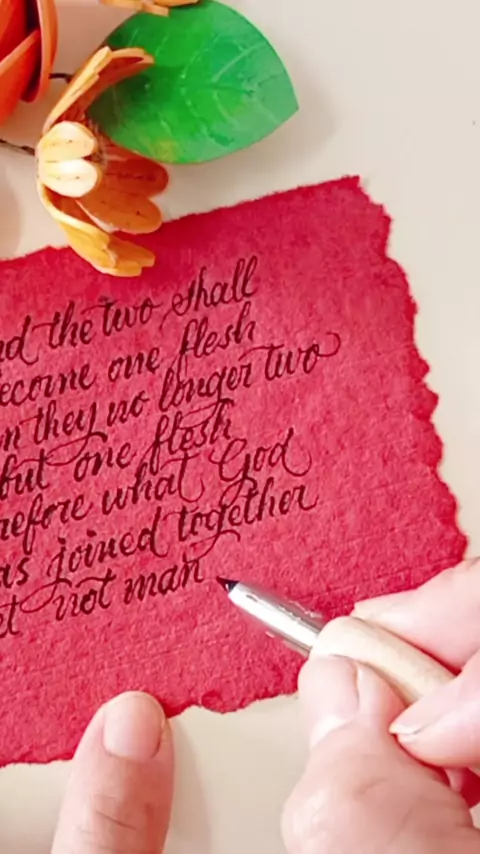 nd the two shall
ecome one flesh
n they no longer two
but one flesh
refore what God
as joined together
et not man